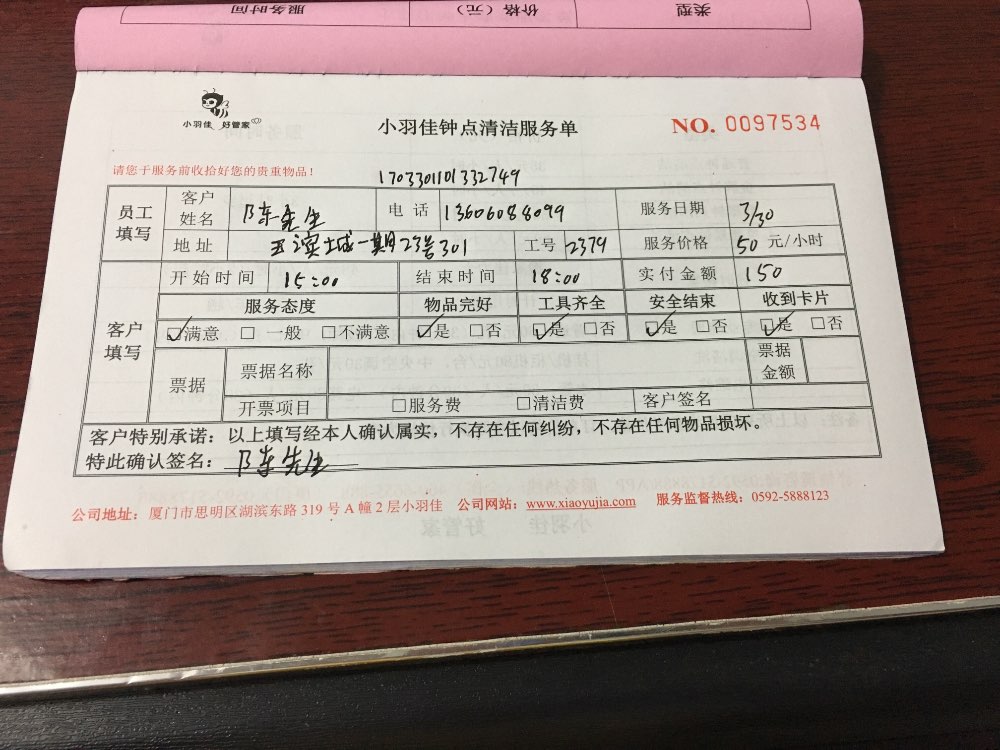 类型 价格（元） 服务时间
小羽佳 好管家
小羽佳钟点清洁服务单 NO. 0097534
请您于服务前收拾好您的贵重物品！ 1703301101332749
员工填写 客户姓名 陈先生 电话 13606088099 服务日期 3/30
地址 滨城一期23号301 工号 2379 服务价格 50 元/小时
客户填写 开始时间 15:00 结束时间 18:00 实付金额 150
服务态度 物品完好 工具齐全 安全结束 收到卡片
☑满意 □一般 □不满意 ☑是 □否 ☑是 □否 ☑是 □否 ☑是 □否
票据 票据名称 票据金额
开票项目 □服务费 □清洁费 客户签名
客户特别承诺：以上填写经本人确认属实，不存在任何纠纷，不存在任何物品损坏。
特此确认签名： 陈先生
公司地址：厦门市思明区湖滨东路 319 号 A 幢 2 层小羽佳 公司网站：www.xiaoyujia.com 服务监督热线：0592-5888123